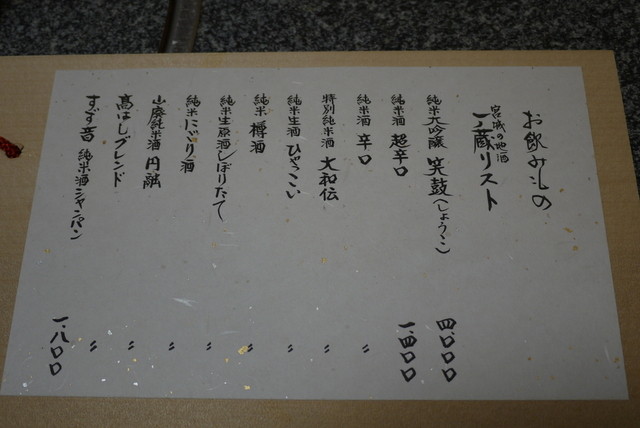 お飲みもの
宮城の地酒
一ノ蔵リスト
純米大吟醸 笑鼓(しょうこ) 四、〇〇〇
純米酒 超辛口 一、四〇〇
純米酒 辛口 〃
特別純米酒 大和伝 〃
純米生酒 ひゃっこい 〃
純米 樽酒 〃
純米生原酒しぼりたて 〃
純米 にごり酒 〃
山廃純米酒 円融 〃
高はしブレンド 〃
すず音 純米酒シャンパン 一、八〇〇